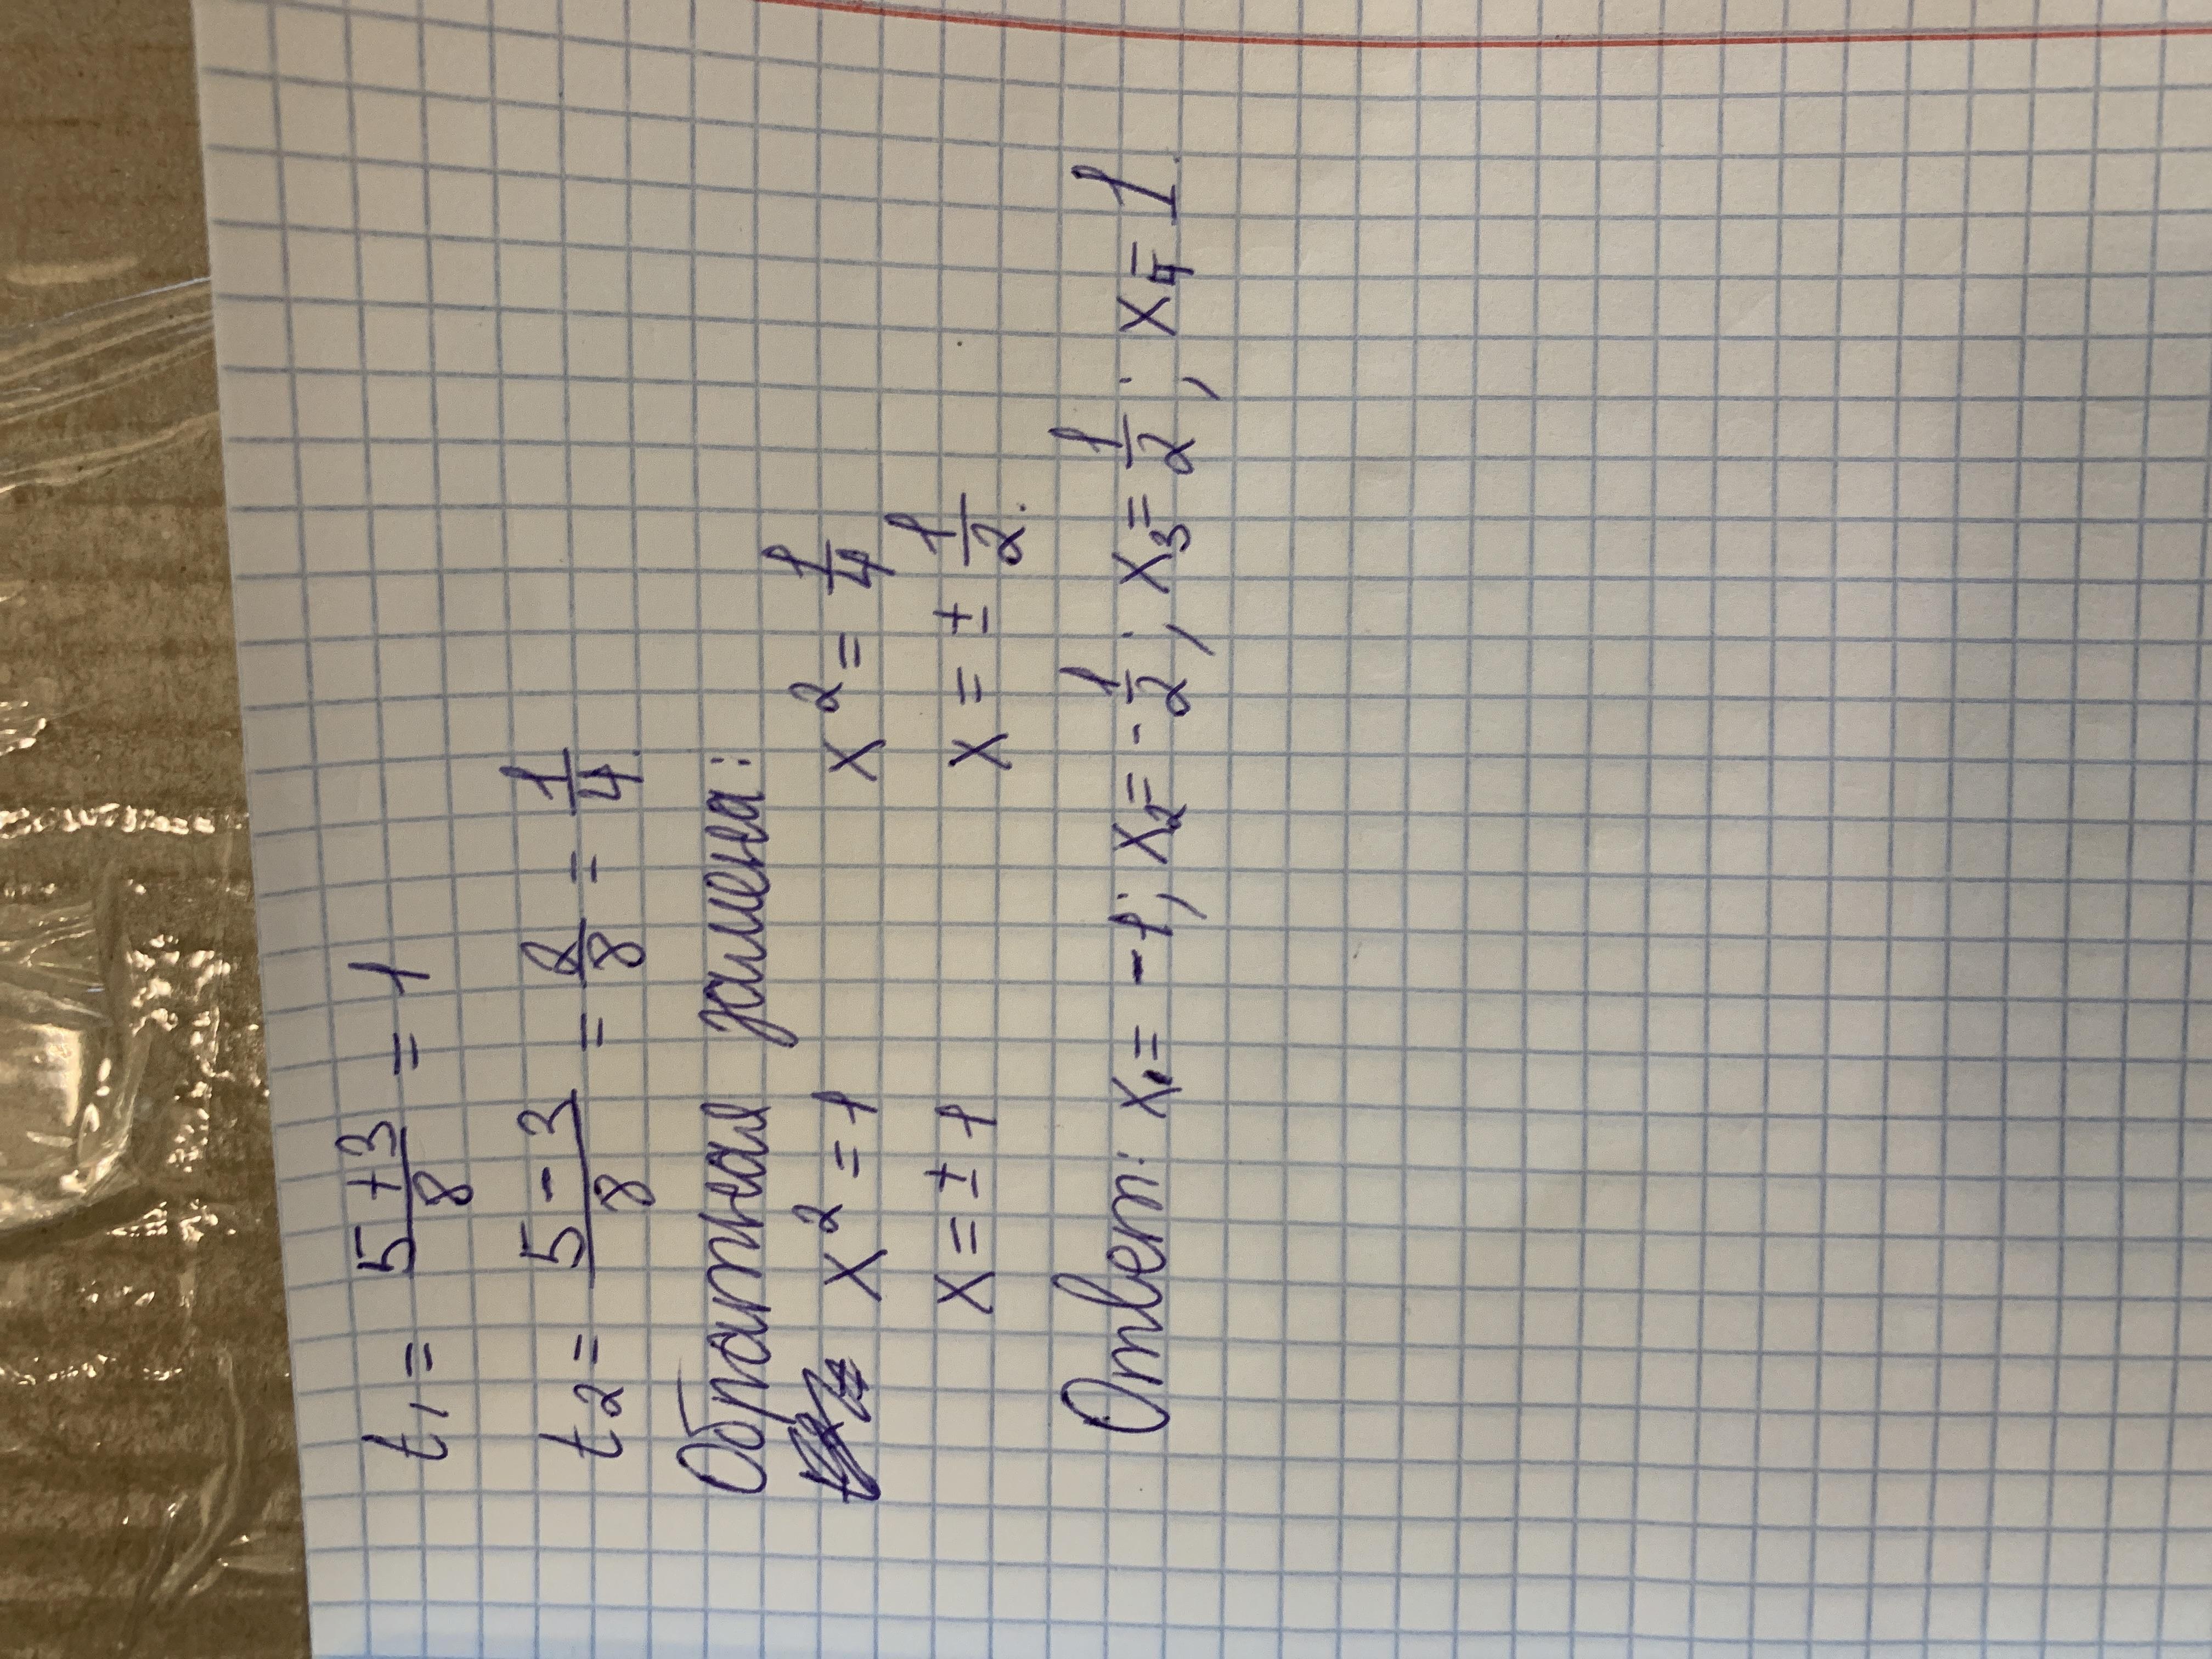 t₁ = (5+3)/8 = 1
t₂ = (5-3)/8 = 2/8 = 1/4.
Обратная замена:
x² = 1 x² = 1/4
x = ± 1 x = ± 1/2.
Ответ: x₁ = -1; x₂ = -1/2; x₃ = 1/2; x₄ = 1.